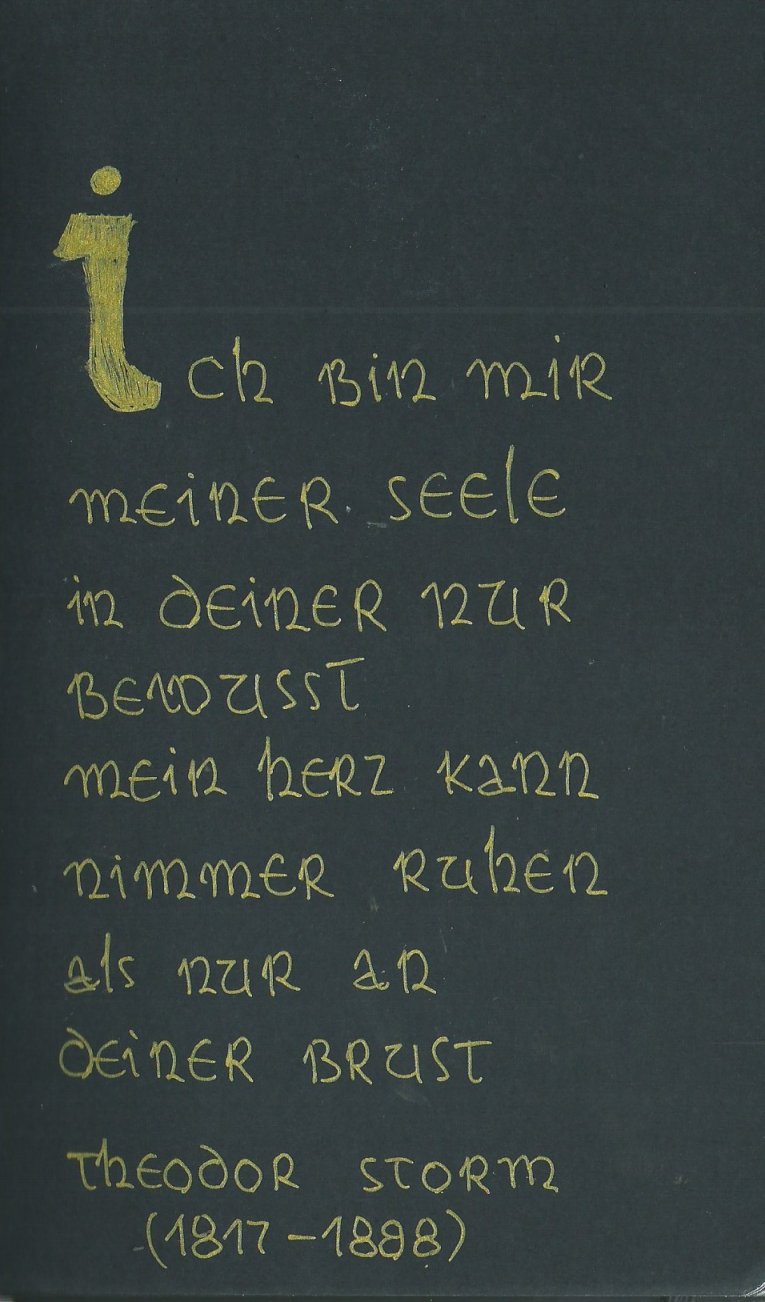 ich bin mir
meiner seele
in deiner nur
bewusst
mein herz kann
nimmer ruhen
als nur an
deiner brust
theodor storm
(1817-1888)